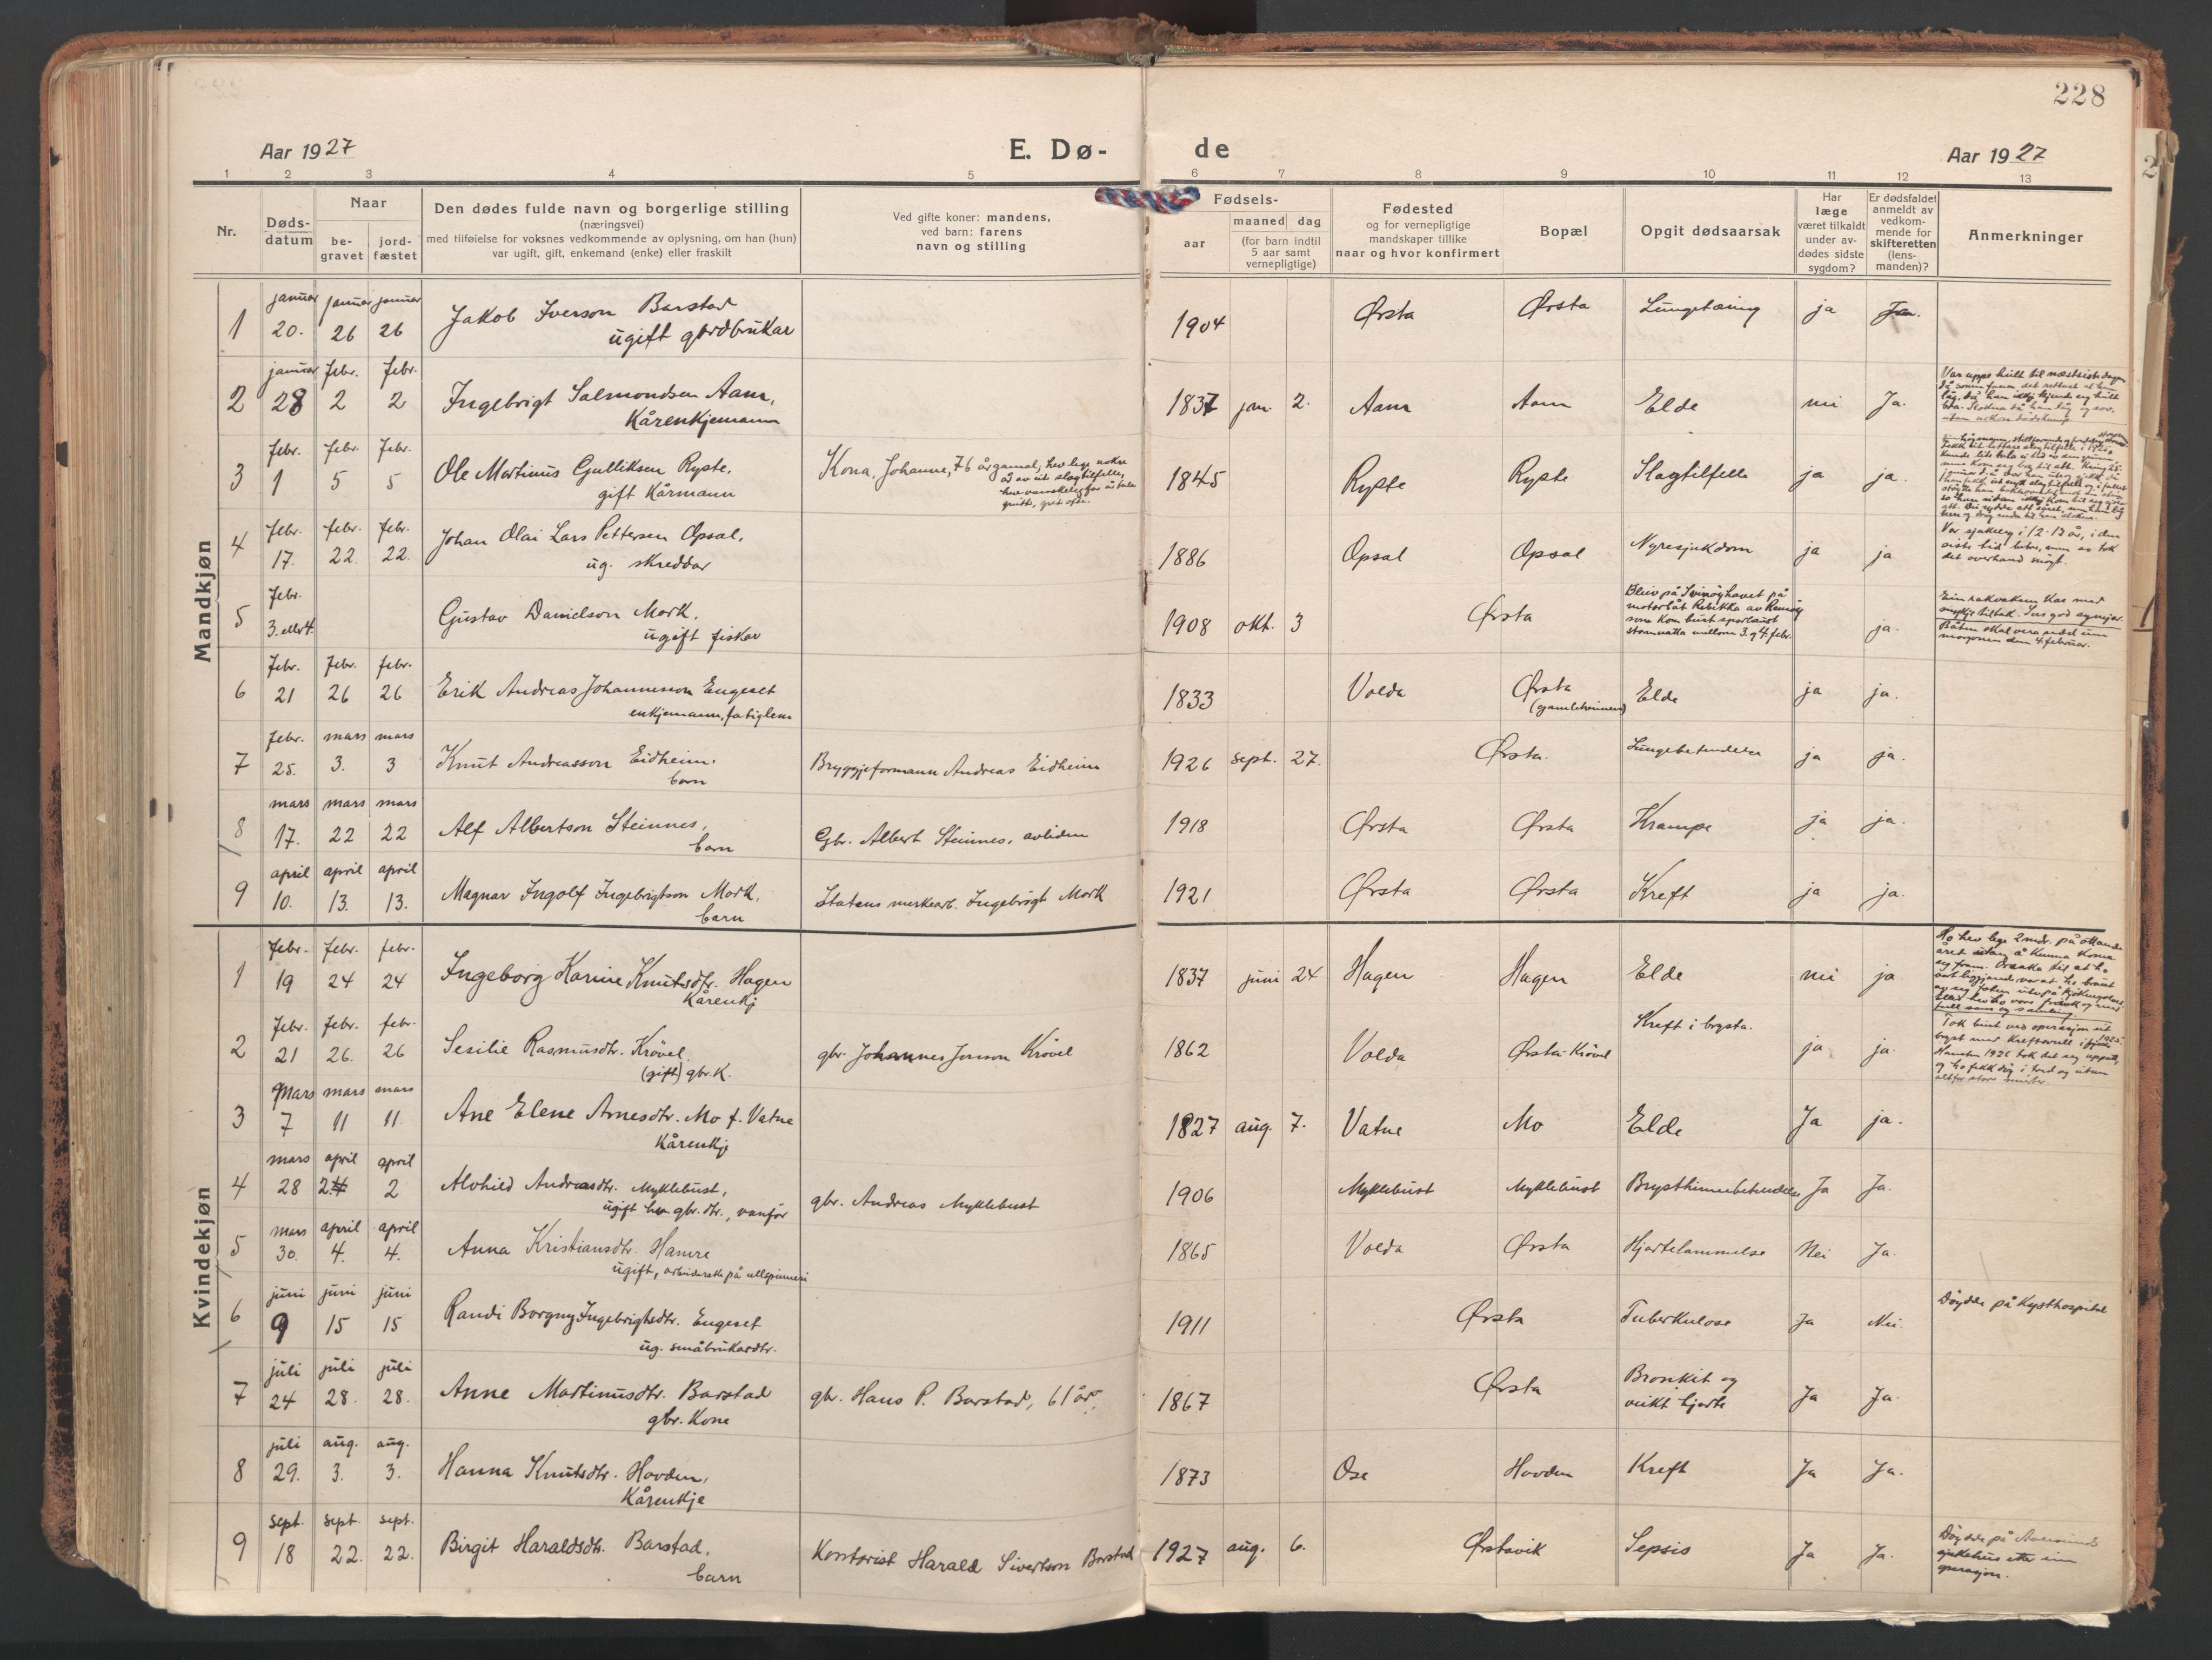 228
Aar 1927
E. Dø-
de
Aar 1927
1 2 3 4 5 6 7 8 9 10 11 12 13
Nr.
Døds-
datum
Naar
be-
gravet
jord-
fæstet
Den dødes fulde navn og borgerlige stilling
(næringsvei)
med tilføielse for voksnes vedkommende av oplysning, om han (hun)
var ugift, gift, enkemand (enke) eller fraskilt
Ved gifte koner: mandens,
ved barn: farens
navn og stilling
Fødsels-
aar
maaned dag
(for barn indtil
5 aar samt
vernepligtige)
Fødested
og for vernepligtige
mandskaper tillike
naar og hvor konfirmert
Bopæl
Opgit dødsaarsak
Har
læge
været tilkaldt
under av-
dødes sidste
sygdom?
Er dødsfaldet
anmeldt av
vedkom-
mende for
skifteretten
(lens-
manden)?
Anmerkninger
Mandkjøn
januar januar januar
1 20. 26 26 Jakob Iverson Barstad 1904 Ørsta Ørsta Lungetæring ja Ja.
ugift gardbrukar
januar febr. febr.
2 28 2 2 Ingebrigt Salmondsen Aam, 1837 jan. 2. Aam Aam Elde nei Ja.
Kårenkjemann
febr. febr. febr.
3 1 5 5 Ole Martinus Gulliksen Ryste. Kona, Johanne, 76 år gamal, hev lege nokre 1845 Ryste Ryste Slagtilfelle ja ja.
gift Kårmann
år av eit slagtilfelle,
febr. febr. febr.
4 17. 22 22. Johan Olai Lars Pettersen Opsal, 1886 Opsal Opsal Nyresjukdom ja ja
ug. skreddar
Var sjukeleg i 12-13 år, i den
siste tid betre, men so tok
det overhand snøgt.
febr.
5 3. eller 4. Gustav Danielson Mork. 1908 okt. 3 Ørsta ja.
ugift fiskar
Bleiv på Svinøyhavet på
motorbåt Rebekka av Remøy
som kom burt sporlaust
stormnatta millom 3. og 4. febr.
Ein rakvaksen kar med
mykje tiltak.
Båten skal vera sedd um
morgonen den 4 februar.
febr. febr. febr.
6 21 26 26 Erik Andreas Johannesson Engeset 1833 Volda Ørsta Elde ja ja.
enkjemann, fatiglem (gamleheimen)
febr. mars mars
7 25. 3. 3 Knut Andreasson Eidheim. Bryggjeformann Andreas Eidheim 1926 sept. 27. Ørsta. Lungebetendelse ja ja.
barn
mars mars mars
8 17. 22 22 Alf Albertson Steinnes, Gbr. Albert Steinnes, avliden 1918 Ørsta Ørsta Krampe ja ja.
barn
april april april
9 10. 13. 13. Magnar Ingolf Ingebrigtson Mork, Statens merkearb. Ingebrigt Mork 1921 Ørsta Ørsta Kreft ja ja.
barn
Kvindekjøn
febr. febr. febr.
1 19 24 24 Ingeborg Karine Knutsdtr. Hagen 1837 juni 24 Hagen Hagen Elde nei ja.
Kårenkj
Ho hev lege 2 mdr. på åttande
året utan å kunna koma
seg fram. Orsaka til at ho
febr. febr. febr.
2 21 26. 26 Sesilie Rasmusdtr. Krøvel. gbr. Johannes Jonson Krøvel 1862 Volda Ørsta-Krøvel Kreft i brysta. ja ja.
(gift) gbr.k.
Tok burt ved operasjon eit
bryst med kreftsvull i 1925.
Hausten 1926 tok det seg uppatt,
mars mars mars
3 7 11 11 Ane Elene Arnesdtr. Mo f. Vatne 1827 aug. 7. Vatne Mo Elde Ja ja.
Kårenkje
mars april april
4 28 2 2 Alvhild Andreasdtr. Myklebust, gbr. Andreas Myklebust 1906 Myklebust Myklebust Brysthinnebetendelse Ja Ja.
ugift gbr. dtr., vanfør
mars april april
5 30. 4. 4. Anna Kristiansdtr. Hamre 1865 Volda Ørsta Hjartelammelse Nei Ja.
ugift, arbeiderske på ullspinneri
juni juni juni
6 9 15 15 Randi Borgny Ingebrigtsdtr. Engeset 1911 Ørsta Tuberkulose Ja Nei. Døydde på Kysthospital
ug. småbrukardtr.
juli juli juli
7 24 28. 28. Anne Martinusdtr. Barstad gbr. Hans P. Barstad, 61 år. 1867 Ørsta Bronkit og Ja Ja.
gbr. kone veikt hjarte
juli aug. aug.
8 29. 3. 3. Hanna Knutsdtr. Hovden, 1873 Ose Hovden Kreft Ja Ja.
Kårenkje
sept. sept. sept.
9 18 22. 22. Birgit Haraldsdtr. Barstad. Kontorist Harald Sivertson Barstad 1927 aug. 6. Ørstavik Sepsis Ja Ja.
barn
Døydde på Aalesund
sjukehus etter ein
operasjon.